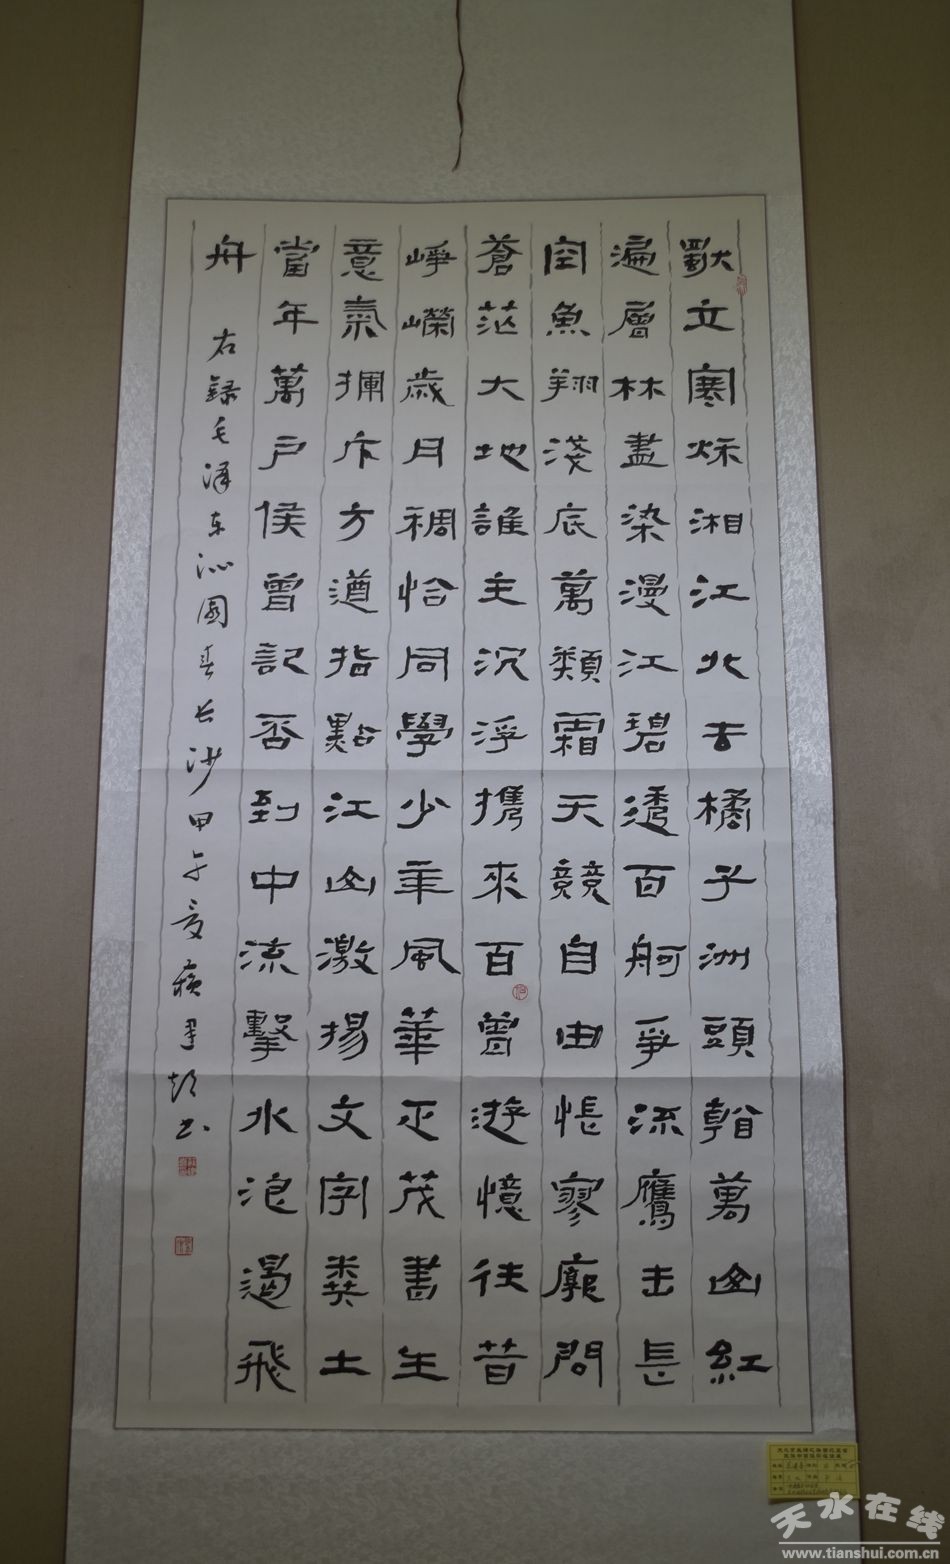 獨立寒秌湘江北去橘子洲頭看萬山紅
遍層林盡染漫江碧透百舸爭流鷹击長
空魚翔淺底萬類霜天競自由悵寥廓問
蒼茫大地誰主沉浮攜來百曾遊憶往昔
崢嶸歲月稠恰同學少年風華正茂書生
意氣揮斥方遒指點江山激揚文字糞土
當年萬戶侯曾記否到中流擊水浪遏飛
舟
右録毛泽东沁園春长沙甲午夏
天水在线
www.tianshui.com.cn